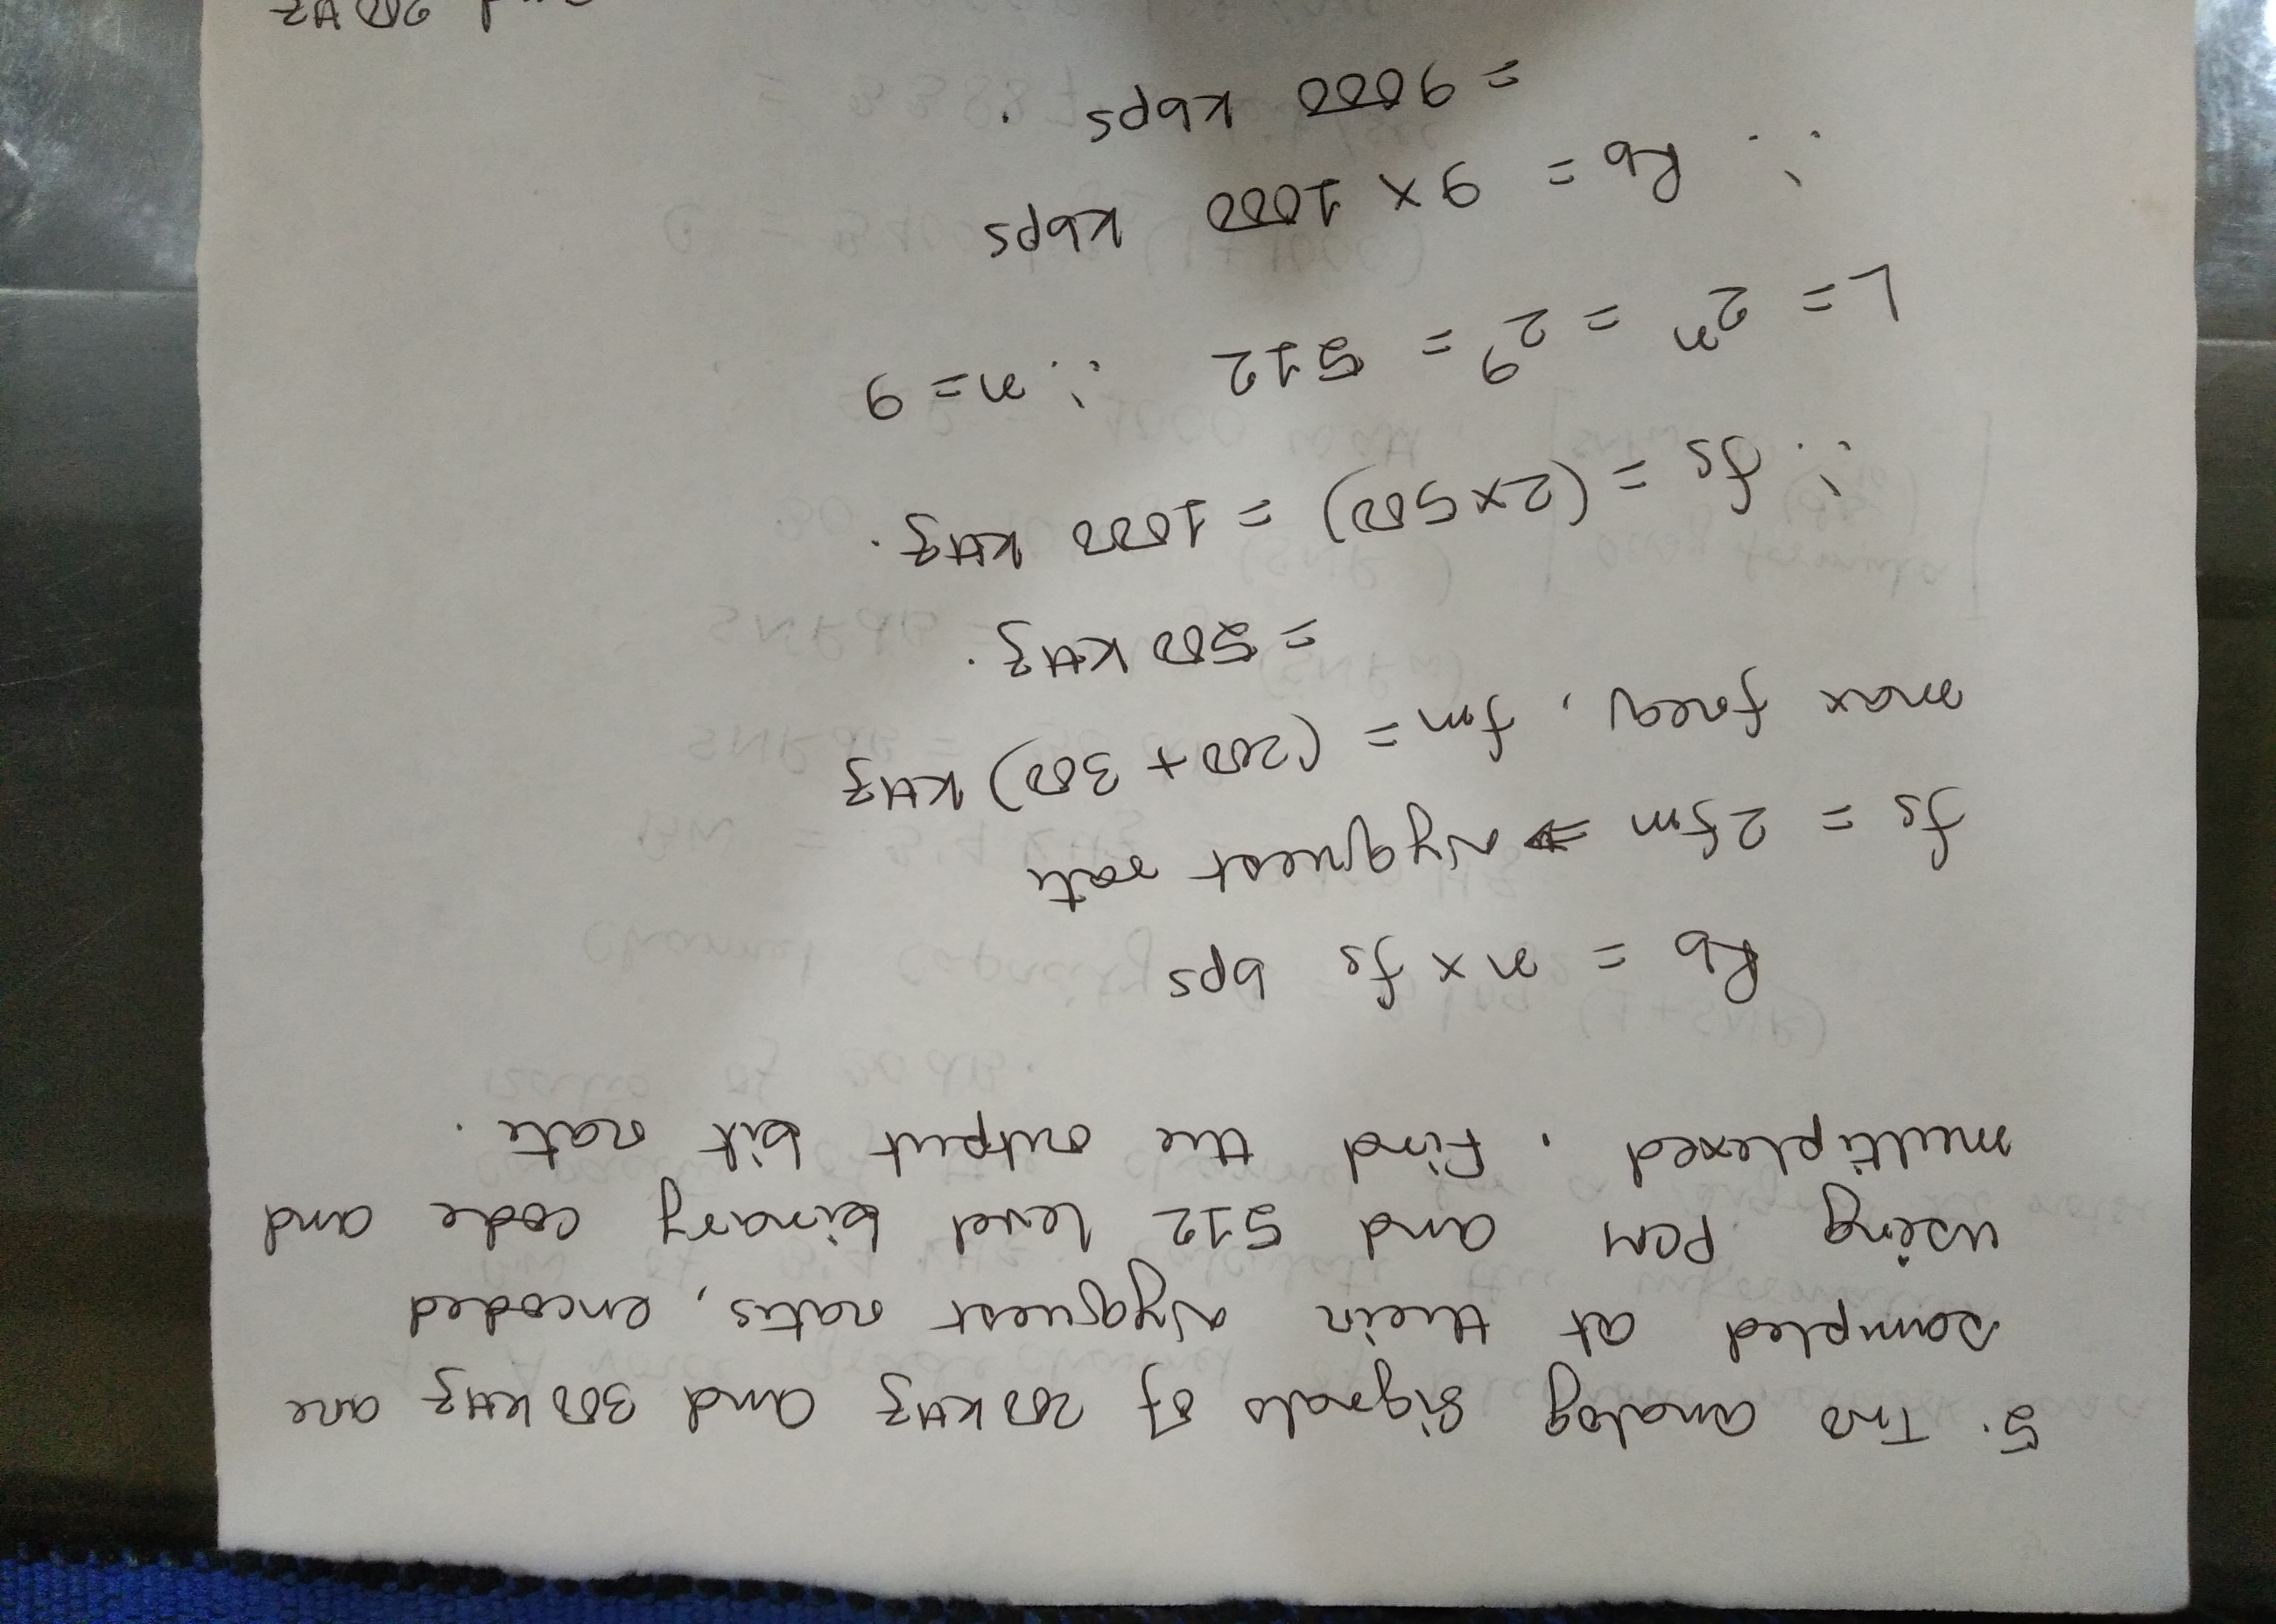 5. Two analog signals of 200 KHz and 300 KHz are
sampled at their Nyquest rates, encoded
using PCM and 512 level binary code and
multiplexed. Find the output bit rate.
Rb = n x fs bps
fs = 2fm ⇒ Nyquest rate
max freq, fm = (200 + 300) KHz
= 500 KHz.
∴ fs = (2x500) = 1000 KHz.
L = 2ⁿ = 2⁹ = 512 ∴ n = 9
∴ Rb = 9 x 1000 Kbps
= 9000 Kbps.